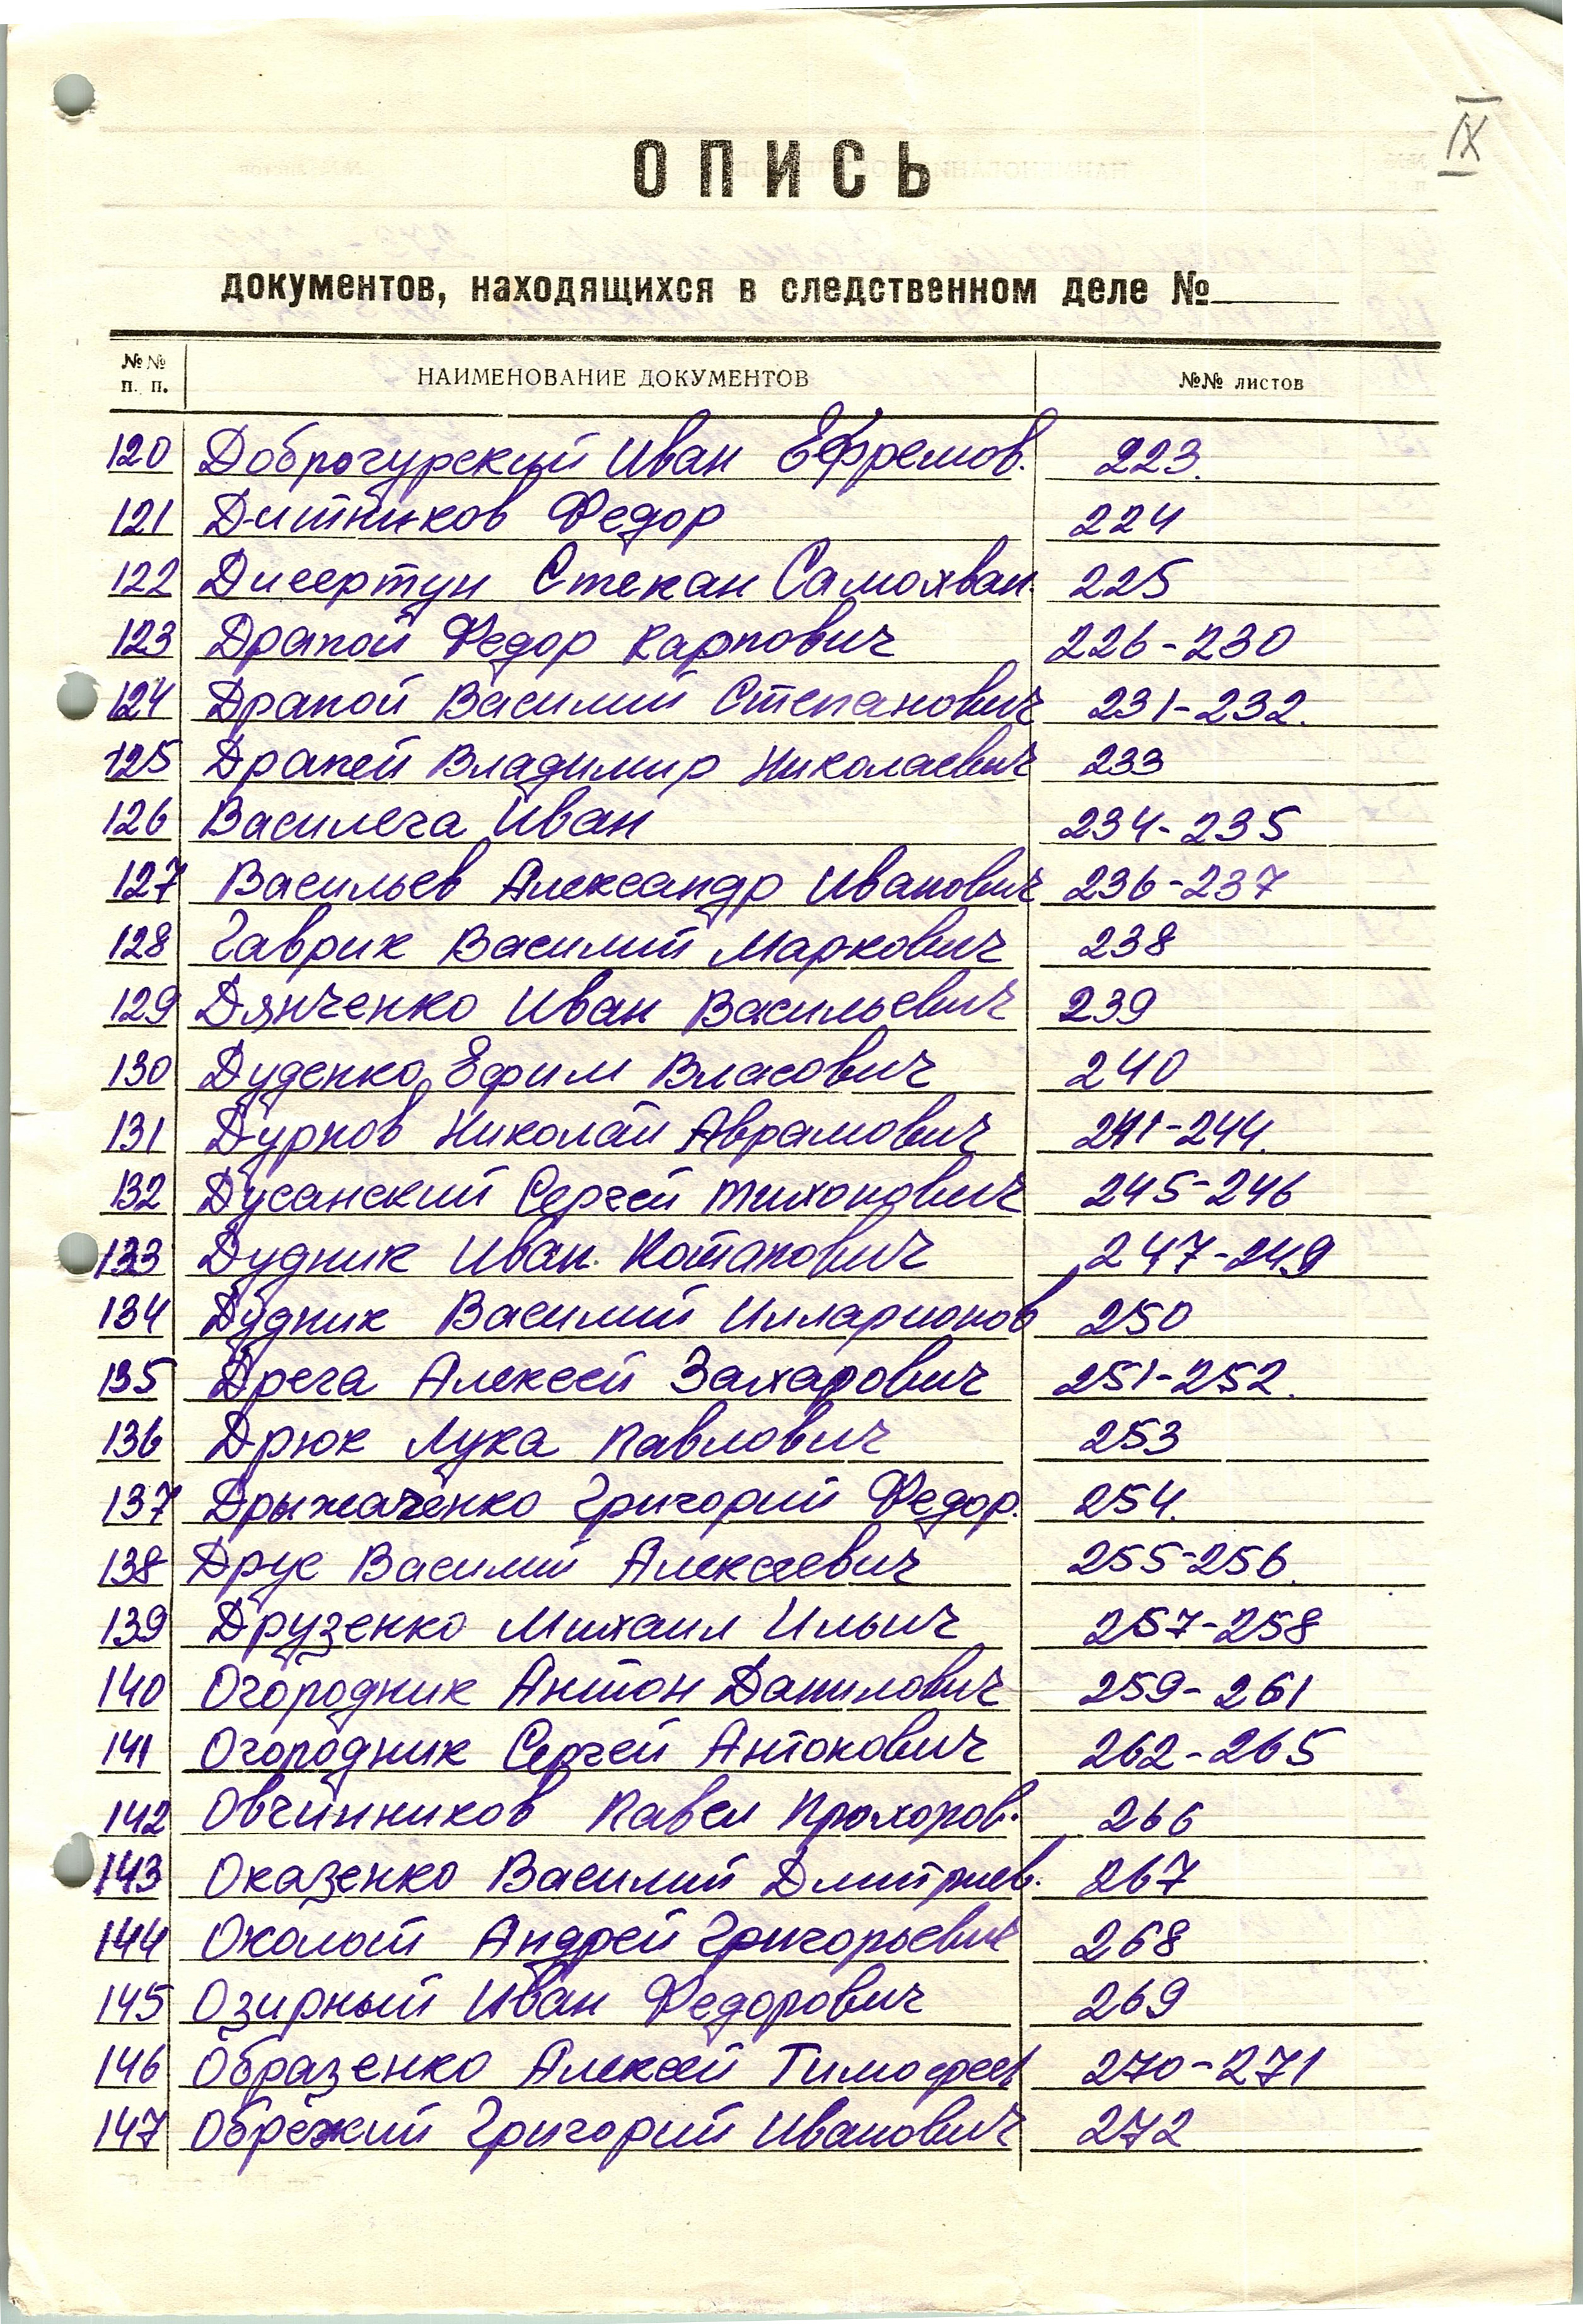 IX
ОПИСЬ
документов, находящихся в следственном деле №
№№ п. п. НАИМЕНОВАНИЕ ДОКУМЕНТОВ №№ листов
120 Доброгурский Иван Ефремов. 223.
121 Дитников Федор 224
122 Дисертун Степан Самохвал. 225
123 Драпой Федор Карпович 226-230
124 Драпой Василий Степанович 231-232.
125 Драпей Владимир Николаевич 233
126 Василега Иван 234-235
127 Васильев Александр Иванович 236-237
128 Гаврик Василий Маркович 238
129 Дянченко Иван Васильевич 239
130 Дуденко Ефим Власович 240
131 Дурнов Николай Аврамович 241-244.
132 Дусанский Сергей Тихонович 245-246
133 Дудник Иван Потапович 247-249
134 Дудник Василий Илларионов 250
135 Дрега Алексей Захарович 251-252.
136 Дрюк Лука Павлович 253
137 Дрыжаченко Григорий Федор. 254.
138 Друс Василий Алексеевич 255-256.
139 Друзенко Михаил Ильич 257-258
140 Огородник Антон Данилович 259-261
141 Огородник Сергей Антонович 262-265
142 Овчинников Павел Прохоров. 266
143 Оказенко Василий Дмитриев. 267
144 Охолот Андрей Григорьевич 268
145 Озирный Иван Федорович 269
146 Образенко Алексей Тимофеев 270-271
147 Обрежий Григорий Иванович 272